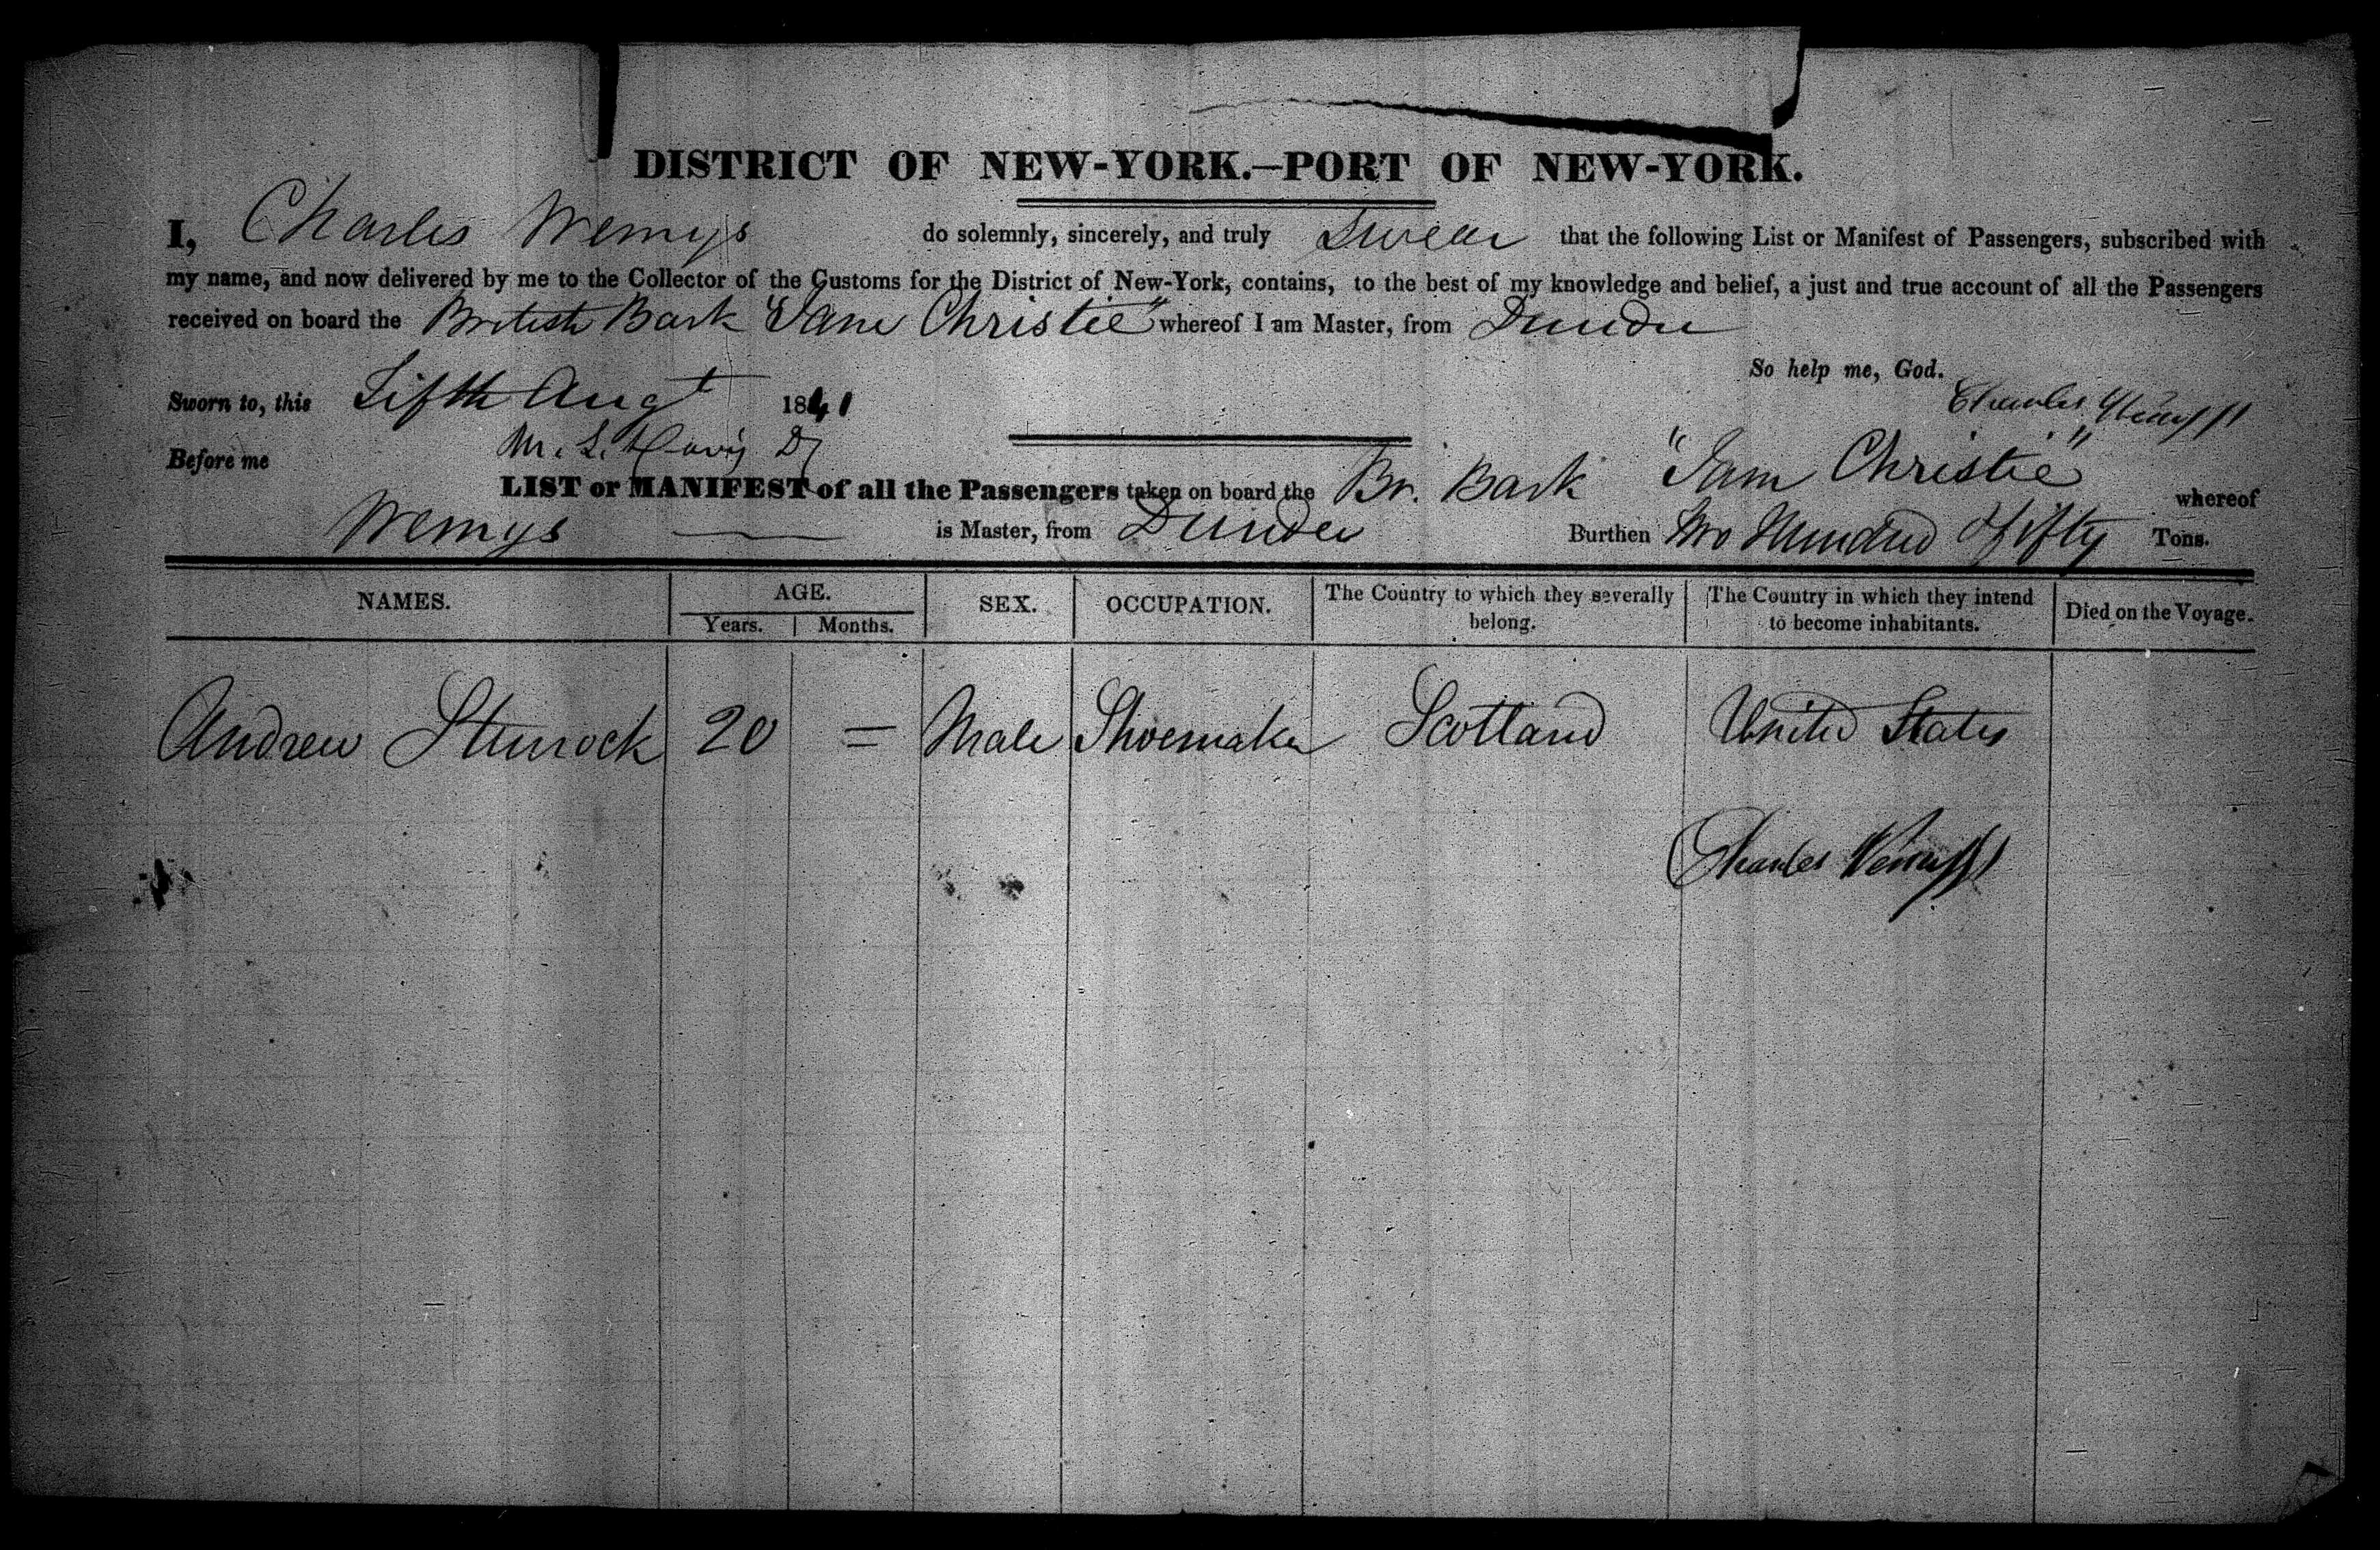 DISTRICT OF NEW-YORK.—PORT OF NEW-YORK.
I, Charles Wemys do solemnly, sincerely, and truly Swear that the following List or Manifest of Passengers, subscribed with
my name, and now delivered by me to the Collector of the Customs for the District of New-York, contains, to the best of my knowledge and belief, a just and true account of all the Passengers
received on board the British Bark "Jane Christie" whereof I am Master, from Dundee
So help me, God.
Sworn to, this Fifth Augt 1841
Charles Wemyss
Before me M. L. Davis
LIST or MANIFEST of all the Passengers taken on board the Br. Bark "Jane Christie" whereof
Wemys is Master, from Dundee Burthen Two Hundred & fifty Tons.
NAMES. AGE. SEX. OCCUPATION. The Country to which they severally belong. The Country in which they intend to become inhabitants. Died on the Voyage.
Years. Months.
Andrew Sturrock 20 = Male Shoemaker Scotland United States
Charles Wemyss